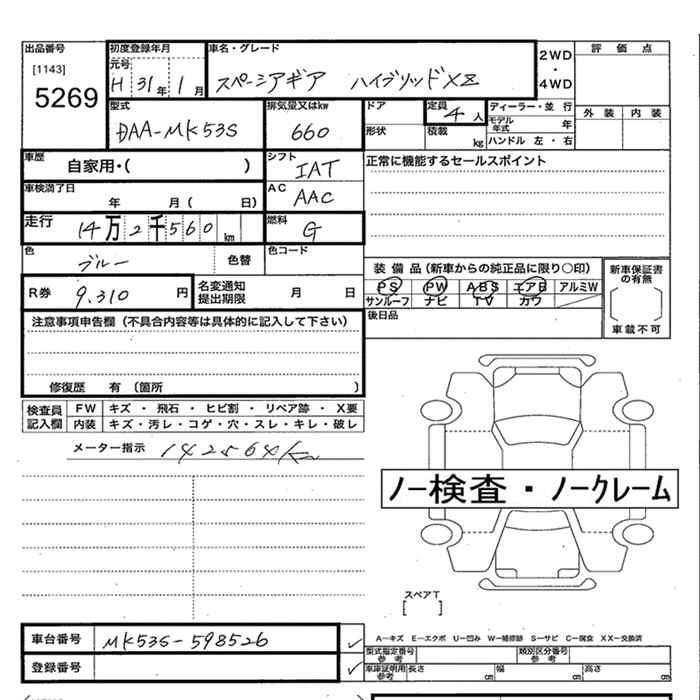 出品番号 初度登録年月 車名・グレード 2WD 評価点
[1143] 元号 ・
5269 H 31年 1月 スペーシアギア ハイブリッドXZ 4WD
型式 排気量又はkw ドア 定員 4人 ディーラー・並行 外装 内装
DAA-MK53S 660 形状 積載 kg モデル年式 年
ハンドル 左・右
車歴 自家用・( ) シフト IAT 正常に機能するセールスポイント
車検満了日 年 月( 日) AC AAC
走行 14万2千560km 燃料 G
色 ブルー 色替 色コード
装備品(新車からの純正品に限り○印) 新車保証書の有無
R券 9,310円 名変通知提出期限 月 日 PS PW ABS エアB アルミW
サンルーフ ナビ TV カワ [ ]
注意事項申告欄(不具合内容等は具体的に記入して下さい) 後日品 車載不可
修復歴 有(箇所 )
検査員記入欄 FW キズ・飛石・ヒビ割・リペア跡・X要
内装 キズ・汚レ・コゲ・穴・スレ・キレ・破レ
メーター指示 142564km
ノー検査・ノークレーム
スペアT
[ ]
車台番号 MK53S-598526 ✓ A―キズ E―エクボ U―凹み W―補修跡 S―サビ C―腐食 XX―交換済
型式指定番号 参考 類別区分番号 参考
登録番号 ✓ 車庫証明用 参考 長さ 幅 高さ